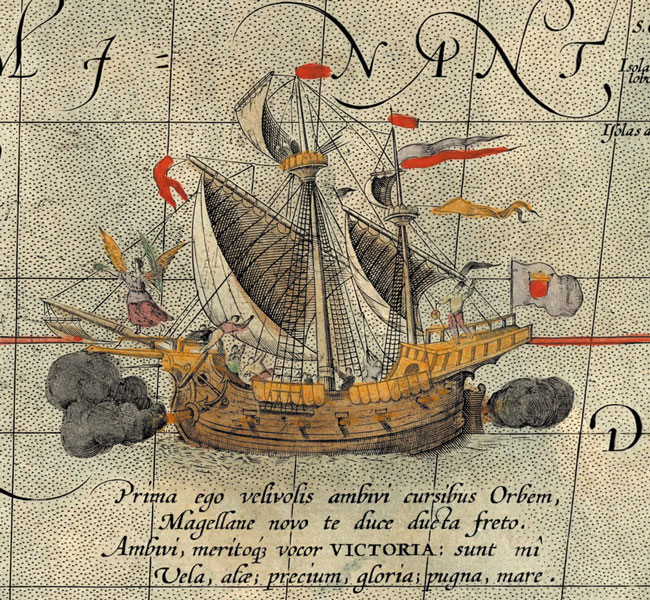 M I = N A N T
S.
Isola
lobo
Isolas d
D
Prima ego velivolis ambivi cursibus Orbem,
Magellane novo te duce ducta freto.
Ambivi, meritoq́ꝫ vocor VICTORIA: sunt mî
Vela, alæ; precium, gloria; pugna, mare.